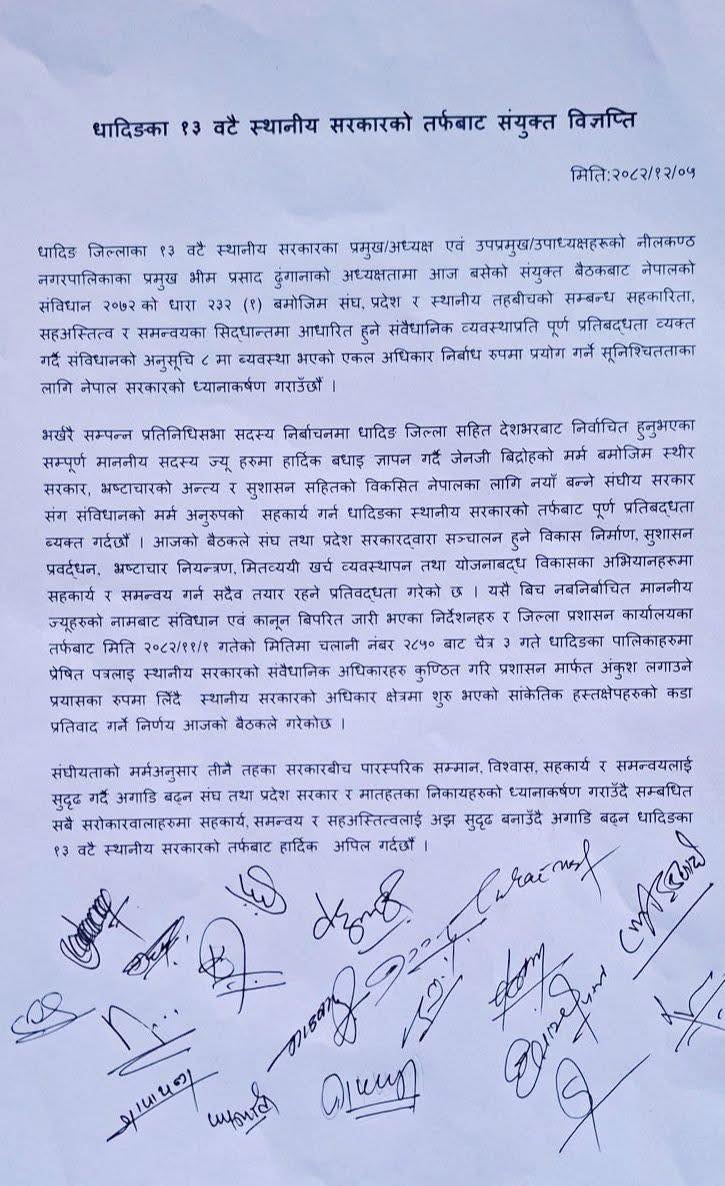 धादिङका १३ वटै स्थानीय सरकारको तर्फबाट संयुक्त विज्ञप्ति
मिति:२०८२/१२/०५
धादिङ जिल्लाका १३ वटै स्थानीय सरकारका प्रमुख/अध्यक्ष एवं उपप्रमुख/उपाध्यक्षहरूको नीलकण्ठ
नगरपालिकाका प्रमुख भीम प्रसाद ढुंगानाको अध्यक्षतामा आज बसेको संयुक्त बैठकबाट नेपालको
संविधान २०७२ को धारा २३२ (१) बमोजिम संघ, प्रदेश र स्थानीय तहबीचको सम्बन्ध सहकारिता,
सहअस्तित्व र समन्वयका सिद्धान्तमा आधारित हुने संवैधानिक व्यवस्थाप्रति पूर्ण प्रतिबद्धता व्यक्त
गर्दै संविधानको अनुसूचि ८ मा व्यवस्था भएको एकल अधिकार निर्बाध रुपमा प्रयोग गर्ने सूनिश्चितताका
लागि नेपाल सरकारको ध्यानाकर्षण गराउँछौं ।
भर्खरै सम्पन्न प्रतिनिधिसभा सदस्य निर्वाचनमा धादिङ जिल्ला सहित देशभरबाट निर्वाचित हुनुभएका
सम्पूर्ण माननीय सदस्य ज्यू हरुमा हार्दिक बधाइ ज्ञापन गर्दै जेनजी बिद्रोहको मर्म बमोजिम स्थीर
सरकार, भ्रष्टाचारको अन्त्य र सुशासन सहितको विकसित नेपालका लागि नयाँ बन्ने संघीय सरकार
संग संविधानको मर्म अनुरुपको सहकार्य गर्न धादिङका स्थानीय सरकारको तर्फबाट पूर्ण प्रतिबद्धता
व्यक्त गर्दछौं । आजको बैठकले संघ तथा प्रदेश सरकारद्वारा सञ्चालन हुने विकास निर्माण, सुशासन
प्रवर्द्धन, भ्रष्टाचार नियन्त्रण, मितव्ययी खर्च व्यवस्थापन तथा योजनाबद्ध विकासका अभियानहरूमा
सहकार्य र समन्वय गर्न सदैव तयार रहने प्रतिवद्धता गरेको छ । यसै बिच नबनिर्बाचित माननीय
ज्यूहरुको नामबाट संविधान एवं कानून बिपरित जारी भएका निर्देशनहरु र जिल्ला प्रशासन कार्यालयका
तर्फबाट मिति २०८२/११/१ गतेको मितिमा चलानी नंबर २८५० बाट चैत्र ३ गते धादिङका पालिकाहरुमा
प्रेषित पत्रलाइ स्थानीय सरकारको संवैधानिक अधिकारहरु कुण्ठित गरि प्रशासन मार्फत अंकुश लगाउने
प्रयासका रुपमा लिँदै स्थानीय सरकारको अधिकार क्षेत्रमा शुरु भएको सांकेतिक हस्तक्षेपहरुको कडा
प्रतिवाद गर्ने निर्णय आजको बैठकले गरेकोछ ।
संघीयताको मर्मअनुसार तीनै तहका सरकारबीच पारस्परिक सम्मान, विश्वास, सहकार्य र समन्वयलाई
सुदृढ गर्दै अगाडि बढ्न संघ तथा प्रदेश सरकार र मातहतका निकायहरुको ध्यानाकर्षण गराउँदै सम्बधित
सबै सरोकारवालाहरुमा सहकार्य, समन्वय र सहअस्तित्वलाई अझ सुदृढ बनाउँदै अगाडि बढ्न धादिङका
१३ वटै स्थानीय सरकारको तर्फबाट हार्दिक अपिल गर्दछौं ।